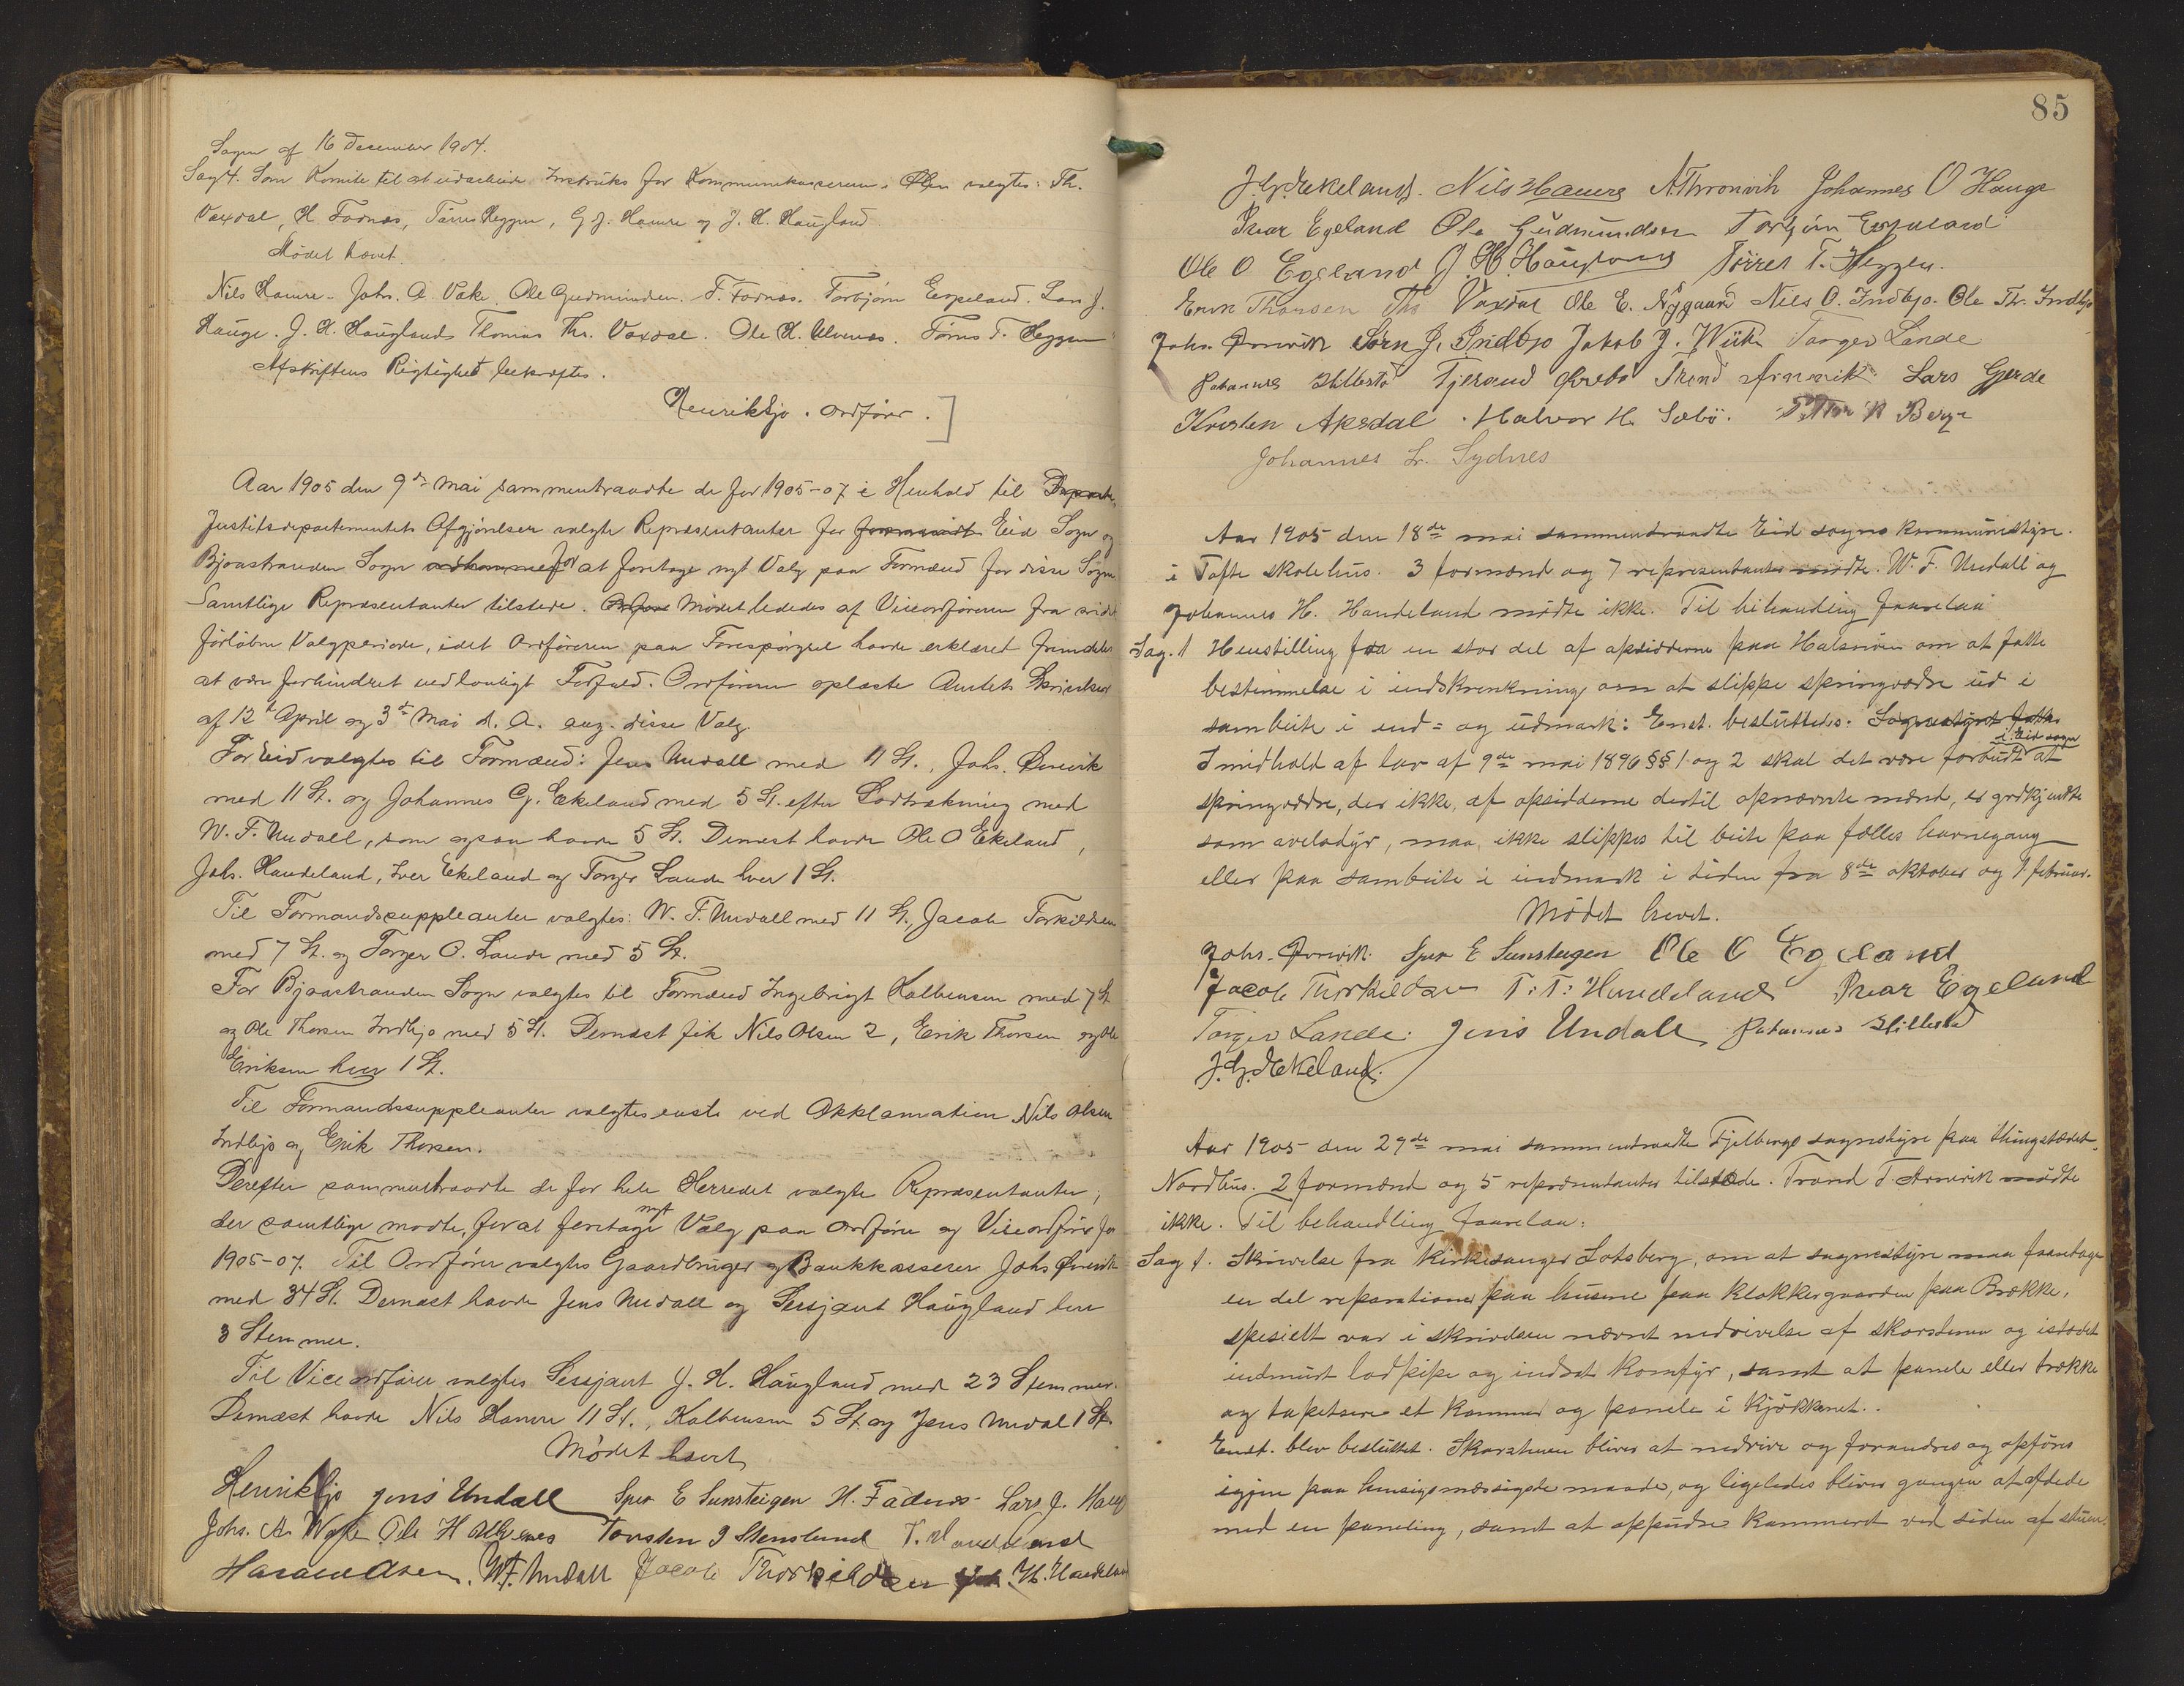 Sagen af 16 December 1904.
Sag 4. Som Komite til at udarbeide Instruks for Kommunekassereren i Ølen valgtes: Th.
Vaxdal, H. Fadnes, Tørres Heggen, G. J. Hamre og J. H. Haugland
Mødet hævet.
Nils Hamre. Johs. A. Vake. Ole Gudmundsen. F. Fadnæs. Torbjørn Eespeland. Lars J.
Hauge. J. H. Haugland Thomas Thr. Vaxdal. Ole H. Ulvenæs. Tørres T. Heggen
Afskriftens Rigtighed bekræftes.
Henrik Bjo. Ordfører.
Aar 1905 den 9de Mai sammentraadte de for 1905-07 i Henhold til Departe
Justitsdepartementets Afgjørelser valgte Repræsentanter for Eid Sogn og
Bjoastranden Sogn for at foretage nyt Valg paa Formænd for disse Sogne
Samtlige Repræsentanter tilstede. Mødet lededes af Viceordføreren fra sidst
forløbne Valgperiode, idet Ordføreren paa Forespørgsel havde erklæret fremdeles
at være forhindret ved lovligt Forfald. Ordføreren oplæste Amtets Skrivelser
af 12te April og 3de Mai d. A. ang. disse Valg.
For Eid valgtes til Formænd: Jens Undall med 11 St., Johs. Ørnevik
med 11 St. og Johannes G. Ekeland med 5 St. efter Lodtrækning med
W. F. Undall, som ogsaa havde 5 St. Dernæst havde Ole O Ekeland,
Johs. Handeland, Iver Ekeland og Torger Lande hver 1 St.
Til Formandssuppleanter valgtes: W. F. Undall med 11 St., Jacob Torkildsen
med 7 St. og Torger O. Lande med 5 St.
For Bjoastranden Sogn valgtes til Formænd Ingebrigt Kalbensen med 7 St
og Ole Thorsen Indbjo med 5 St. Dernæst fik Nils Olsen 2, Erik Thorsen og Ole
Eriksen hver 1 St.
Til Formandssuppleanter valgtes enst. ved Akklamation Nils Olsen
Indbjo og Erik Thorsen.
Derefter sammentraadte de for hele Herredet valgte Repræsentanter,
der samtlige mødte, for at foretage nyt Valg paa Ordfører og Viceordfører for
1905-07. Til Ordfører valgtes Gaardbruger og Bankkasserer Johs Ørnevik
med 34 St. Dernæst havde Jens Undall og Sersjant Haugland hver
3 Stemmer.
Til Viceordfører valgtes Sersjant J. H. Haugland med 23 Stemmer.
Dernæst havde Nils Hamre 11 St., Kalbensen 5 St. og Jens Undal 1 St.
Mødet hævet
Henrik Bjo Jens Undall Iver E Sunsteigen H. Fadnes. Lars J. Haug
Johs. A. Wake Ole H Ulvenes Torsten I Stenslund T. Handeland
W. F. Undall Jacob Thorkildsen H. Handelan
85
J. G. Ekeland. Nils Hamre A Thronvik Johannes O Hauge
Ivar Egeland Ole Gudmundsen Torbjørn Espeland
Ole O Egeland J. H. Haugland Tørres T. Heggen.
Erik Thorsen Tho Vaxdal Ole E. Nygaard Nils O. Indbjo. Ole Th. Indbjo
Johs. Ørnevik Sørn J. Indbjo Jakob J. Wiik Torger Lande
Johannes Hillestad Tjerand Trond Arnevik Lars Gjerde
Kristen Aksdal. Halvor H. Sæbø. Berge
Johannes L. Sydnes
Aar 1905 den 18de mai sammentraadte Eid sogns kommunestyre
i Tofte skolehus. 3 formænd og 7 repræsentanter mødte. W. F. Undall og
Johannes H. Handeland mødte ikke. Til behandling forelaa
Sag. 1 Henstilling fra en stor del af opsidderne paa Halsnøen om at fatte
bestemmelse i indskrænkning om at slippe springvædre ud i
sambeite i ind= og udmark: Enst. besluttedes: Sognestyret fatte
I medhold af lov af 9de mai 1896 §§ 1 og 2 skal det være forbudt i Eid sogn at
springvædre, der ikke, af opsidderne dertil opnævnte mænd, er godkjendte
som avelsdyr, maa ikke slippes til beite paa fælles havnegang
eller paa sambeite i indmark i tiden fra 8de oktober og 1 februar.
Mødet hævet.
Johs. Ørnevik. Iver E Sunsteigen Ole O Egeland
Jacob Thorkildsen T: T: Handeland Ivar Egeland
Torger Lande. Jens Undall, Johannes Hillestad
J. G. Ekeland.
Aar 1905 den 29de mai sammentraadte Fjelberg sognestyre paa thingstædet
Nordhus. 2 formænd og 5 repræsentanter tilstede. Trond T. Arnevik mødte
ikke. Til behandling forelaa:
Sag 1. Skrivelse fra kirkesanger Lotsberg, om at sognestyre maa foretage
en del reparationer paa husene paa klokkergaarden paa Brekke,
spesielt var i skrivelsen nævnt nedrivelse af skorstenen og istedet
indmurt lodpipe og indsat komfyr, samt at panele eller trække
og tapetsere et kammer og panele i kjøkkenet.
Enst. blev besluttet. Skorstenen bliver at nedrive og forandres og opføres
igjen paa hensigtsmæssigste maade, og ligeledes bliver gangen at afdele
med en paneling, samt at oppudse kammeret ved siden af stuen.